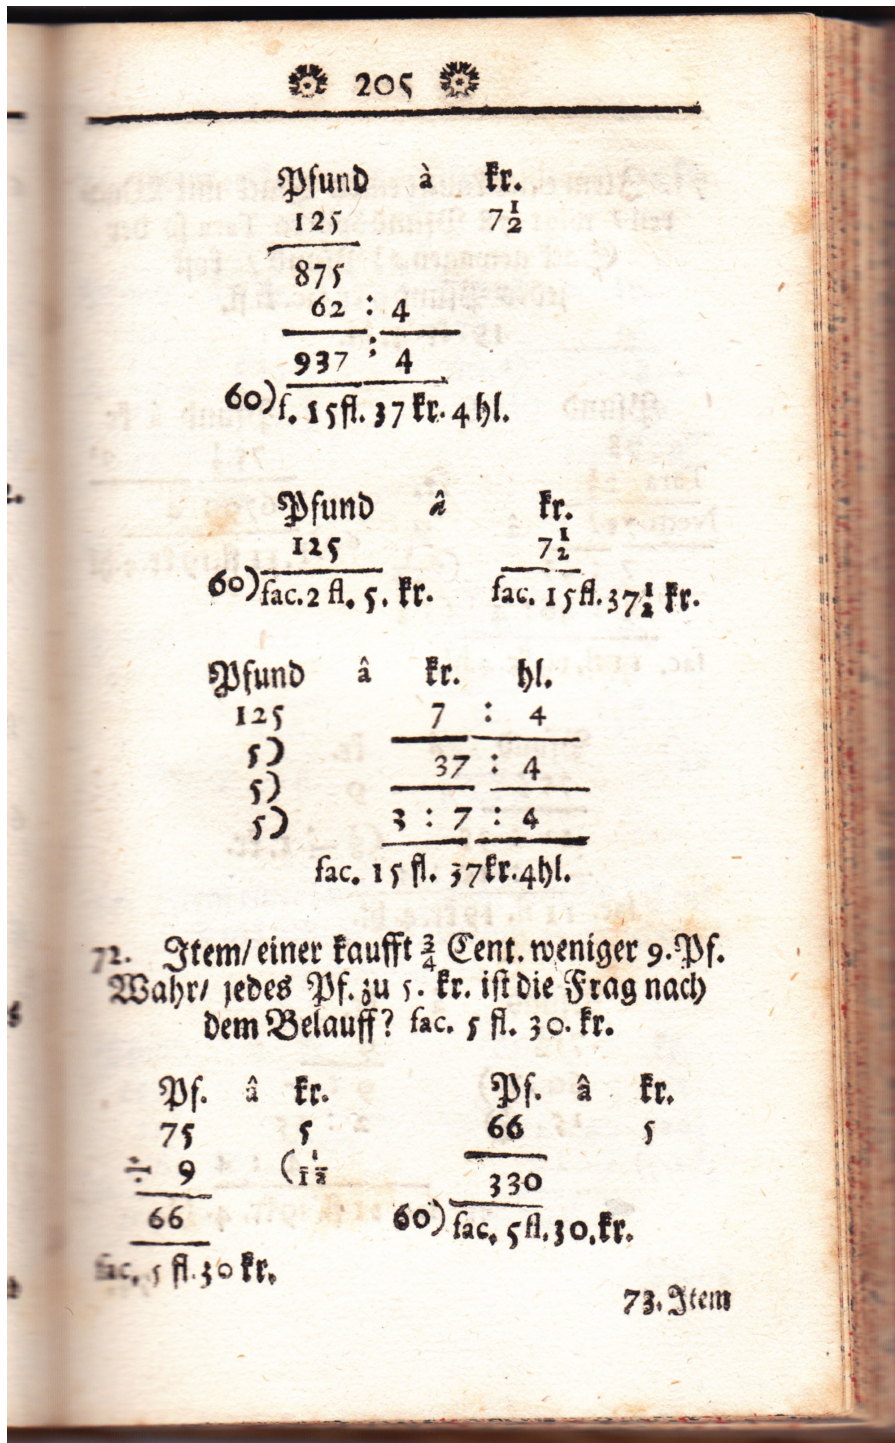 205
Pfund à kr.
125 7 1/2
875
62 : 4
937 : 4
60) f. 15 fl. 37 kr. 4 hl.
Pfund â kr.
125 7 1/2
60) fac. 2 fl. 5. kr. fac. 15 fl. 37 1/2 kr.
Pfund â kr. hl.
125 7 : 4
5) 37 : 4
5)
5) 3 : 7 : 4
fac. 15 fl. 37 kr. 4 hl.
72. Item/ einer kaufft 3/4 Cent. weniger 9. Pf.
Wahr/ jedes Pf. zu 5. kr. ist die Frag nach
dem Belauff? fac. 5 fl. 30. kr.
Pf. â kr. Pf. â kr.
75 5 66 5
÷ 9 (1/12 330
66 60) fac. 5 fl. 30. kr.
fac. 5 fl. 30 kr.
73. Item